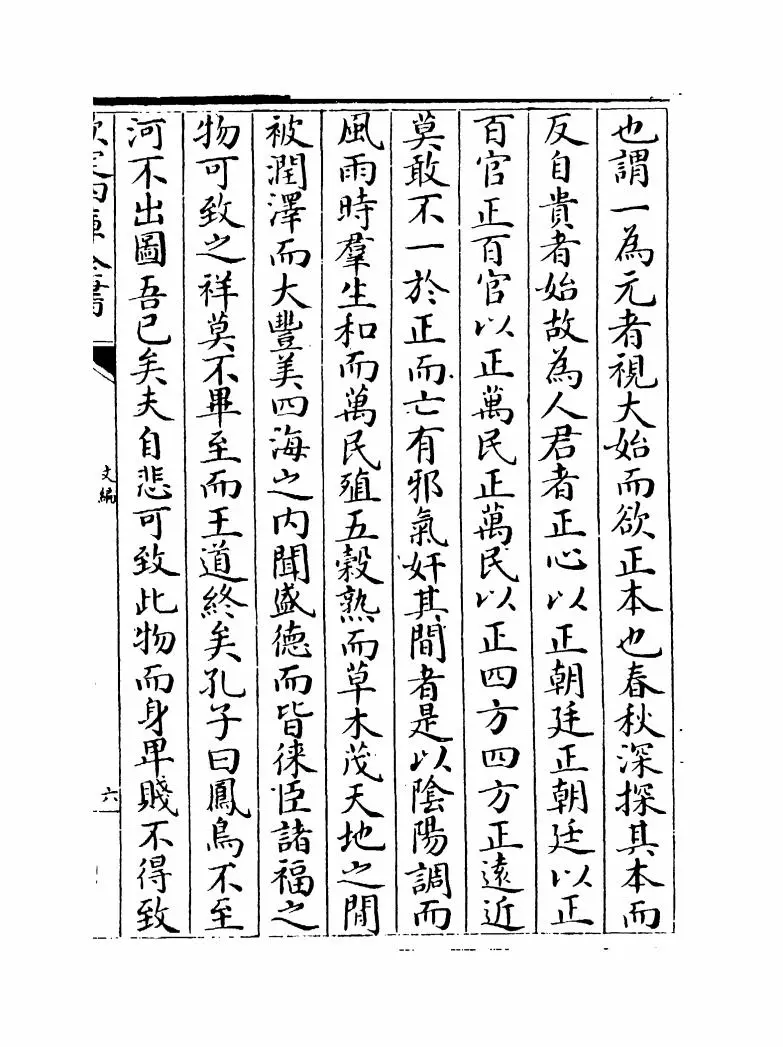 也謂一為元者視大始而欲正本也春秋深探其本而
反自貴者始故為人君者正心以正朝廷正朝廷以正
百官正百官以正萬民正萬民以正四方四方正逺近
莫敢不一於正而亡有邪氣奸其間者是以陰陽調而
風雨時羣生和而萬民殖五穀熟而草木茂天地之間
被潤澤而大豐美四海之内聞盛德而皆徠臣諸福之
物可致之祥莫不畢至而王道終矣孔子曰鳳鳥不至
河不出圖吾已矣夫自悲可致此物而身卑賤不得致
欽定四庫全書
文編
六